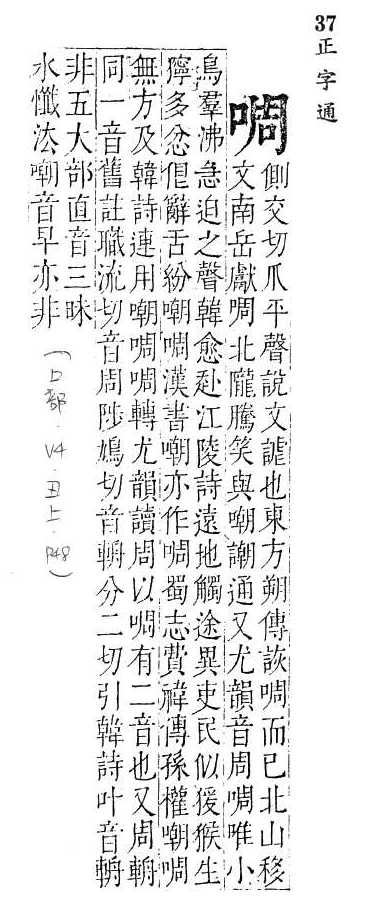 37 正字通
啁
側交切爪平聲說文謔也東方朔傳詼啁而已北山移
文南岳獻啁北隴騰笑與嘲謿通又尤韻音周啁唯小
鳥羣沸急迫之聲韓愈赴江陵詩遠地觸途異吏民似猨猴生
獰多忿佷辭舌紛嘲啁漢書嘲亦作啁蜀志費禕傳孫權嘲啁
無方及韓詩連用嘲啁啁轉尤韻讀周以啁有二音也又周輈
同一音舊註職流切音周陟鳩切音輈分二切引韓詩叶音輈
非五大部直音三昧
水懺法嘲音早亦非
(口部.V4.丑上.P48)